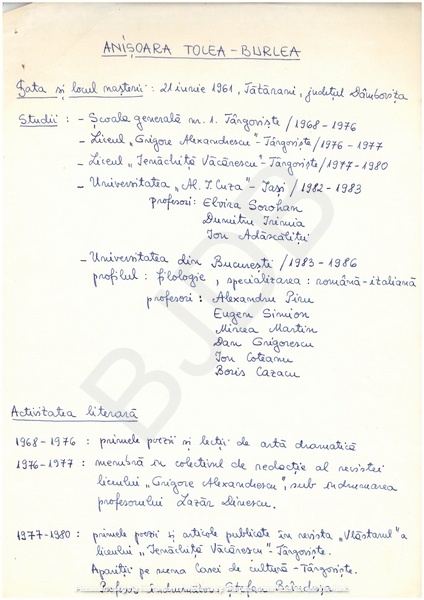 ANIȘOARA TOLEA-BURLEA
Data și locul nașterii : 21 iunie 1961, Tătărani, județul Dâmbovița
Studii : - Școala generală nr. 1. Târgoviște / 1968 - 1976
- Liceul „Grigore Alexandrescu" - Târgoviște / 1976 - 1977
- Liceul „Ienăchiță Văcărescu" - Târgoviște / 1977 - 1980
- Universitatea „Al. I. Cuza" - Iași / 1982 - 1983
profesori: Elvira Sorohan
Dumitru Irimia
Ion Adăscăliței
- Universitatea din București / 1983 - 1986
profilul : filologie, specializarea : română-italiană
profesori : Alexandru Piru
Eugen Simion
Mircea Martin
Dan Grigorescu
Ion Coteanu
Boris Cazacu
Activitatea literară
1968 - 1976 : primele poezii și lecții de artă dramatică
1976 - 1977 : membră în colectivul de redacție al revistei
liceului „Grigore Alexandrescu", sub îndrumarea
profesorului Lazăr Dinescu.
1977 - 1980 : primele poezii și articole publicate în revista „Vlăstarul" a
liceului „Ienăchiță Văcărescu" - Târgoviște.
Apariții pe scena Casei de cultură - Târgoviște.
Profesor îndrumător: Ștefan
BJDB